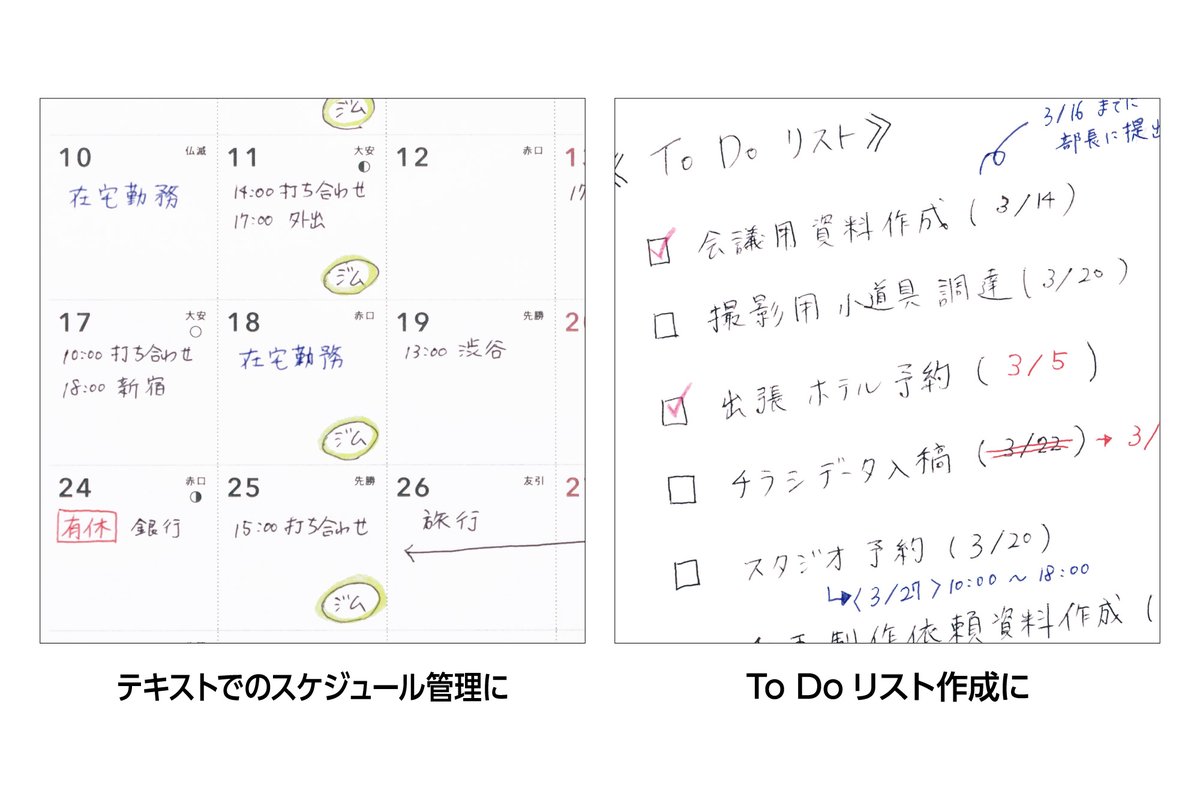 ジム
10 仏滅
在宅勤務
11 大安
14:00 打ち合わせ
17:00 外出
ジム
12 赤口
17 大安
10:00 打ち合わせ
18:00 新宿
18 赤口
在宅勤務
ジム
19 先勝
13:00 渋谷
24 赤口
有休 銀行
25 先勝
15:00 打ち合わせ
ジム
26 友引
旅行
テキストでのスケジュール管理に
3/16 までに
部長に提出
To Do リスト》
会議用資料作成 (3/14)
撮影用 小道具 調達 (3/20)
出張 ホテル 予約 (3/5)
チラシデータ入稿 (3/22) → 3/
スタジオ 予約 (3/20)
〈3/27〉10:00 〜 18:00
制作依頼資料作成 (
To Do リスト作成に